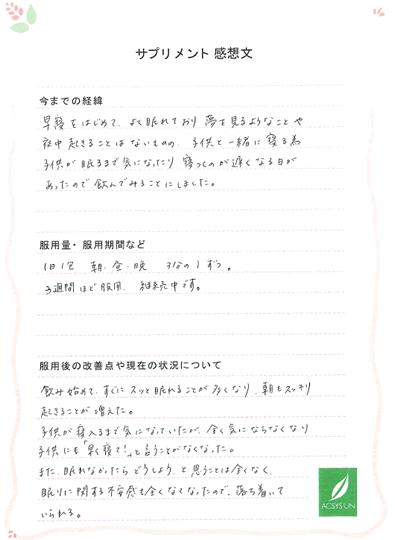 サプリメント 感想文
今までの経緯
早寝をはじめて、よく眠れており 夢を見るようなことや
夜中起きることはないものの、子供と一緒に寝る為
子供が眠るまで気になったり 寝つくのが遅くなる日が
あったので飲んでみることにしました。
服用量・服用期間など
1日1包 朝・昼・晩 3分の1ずつ。
3週間ほど服用、継続中です。
服用後の改善点や現在の状況について
飲み始めて、すぐに スッと眠れることが多くなり、朝もスッキリ
起きることが増えた。
子供が寝入るまで気になっていたが、全く気にならなくなり
子供にも「早く寝て!」と言うことがなくなった。
また、眠れなかったらどうしよう、と思うことは全くなく、
眠りに関する不安感も全くなくなったので、落ち着いて
いられる。
ACSYS UN